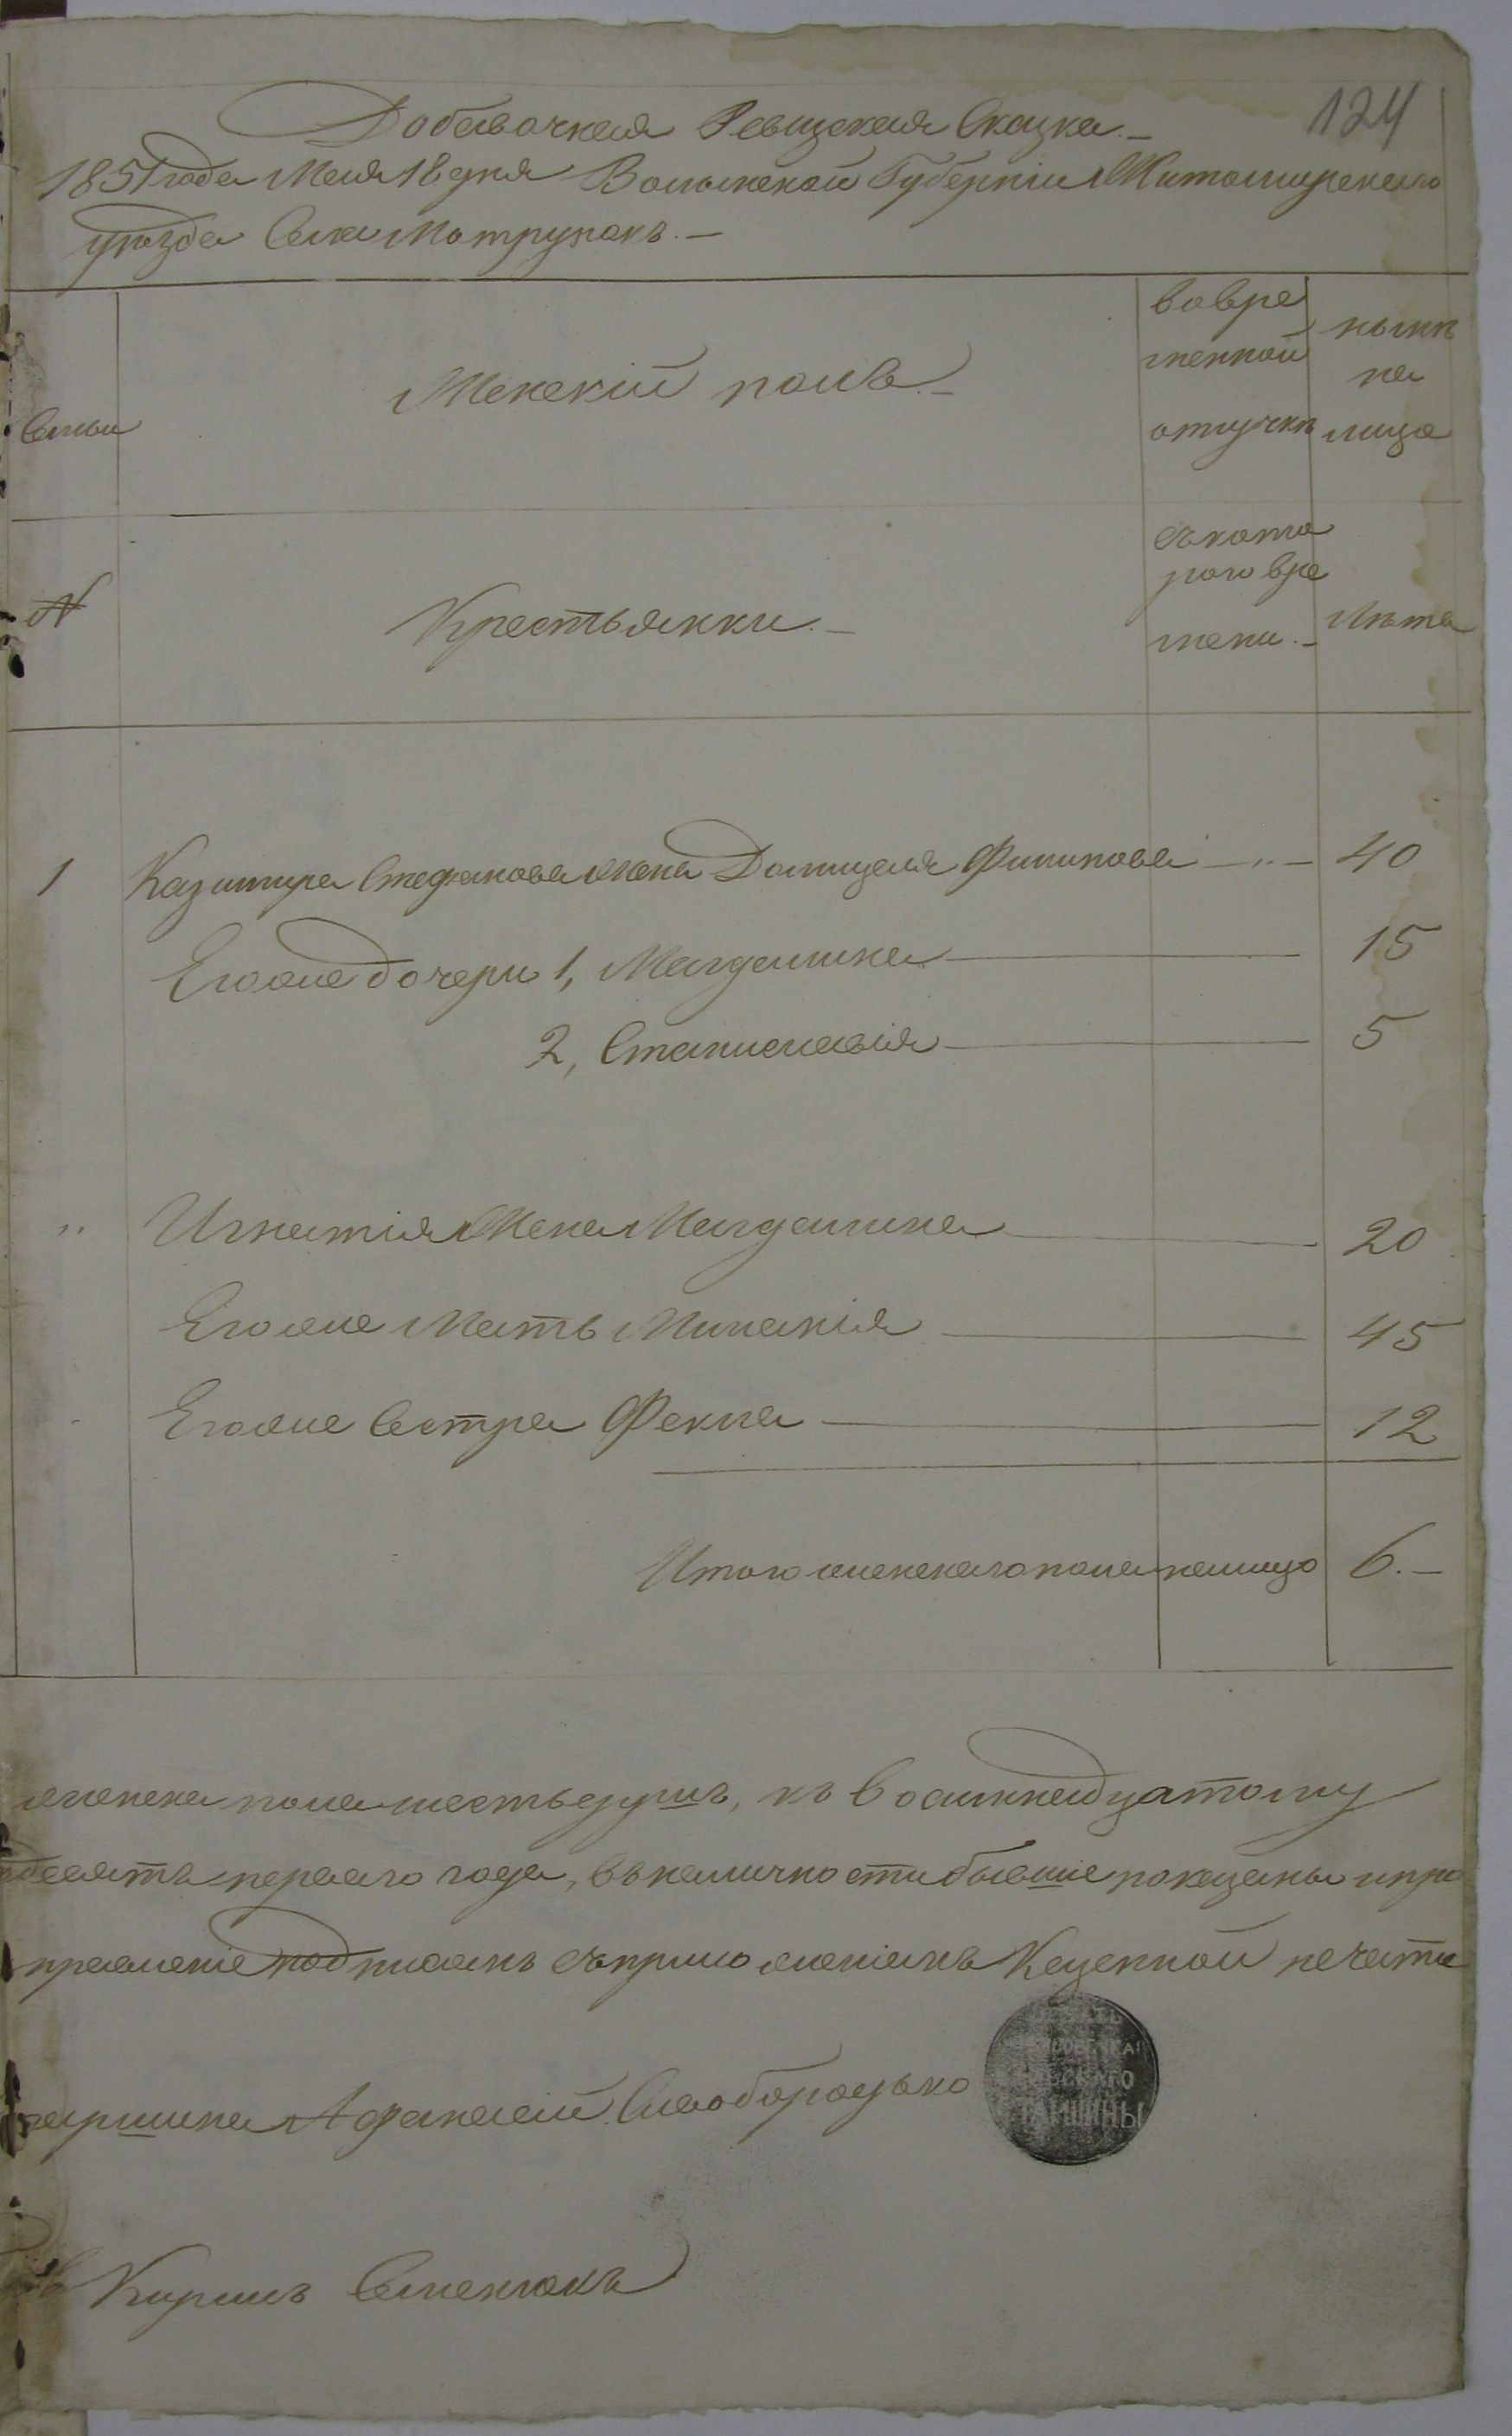 124
Добавочная Ревизская Сказка.–
1851 года Мая 18 дня Волынской Губернии Житомирскаго
уѣзда Села Мотрунокъ.–
Семьи
Женскій полъ.–
во вре
менной
отлучкѣ
нынѣ
на
лицо
N
Крестьянки.–
съ кото
раго вре
мени.–
Лѣта
1 Казимира Стефанова жена Домицеля Филипова – „ – 40
Егоже дочери 1, Магдалина 15
2, Станиславія 5
„ Игнатія Жена Магдалина 20
Егоже Мать Миланія 45
Егоже Сестра Фекла 12
Итого женскаго пола налицо 6.–
женска пола шесть душъ, къ Восимнадцатому
десятъ перваго года, въ наличности бывшіе показаны и про
правленіе подписомъ съ приложеніемъ Казенной печати
Афанасій Слободзяко
ПЕЧАТЬ
СКАГО
СТАРШИНЫ
Кирилъ Семенюкъ